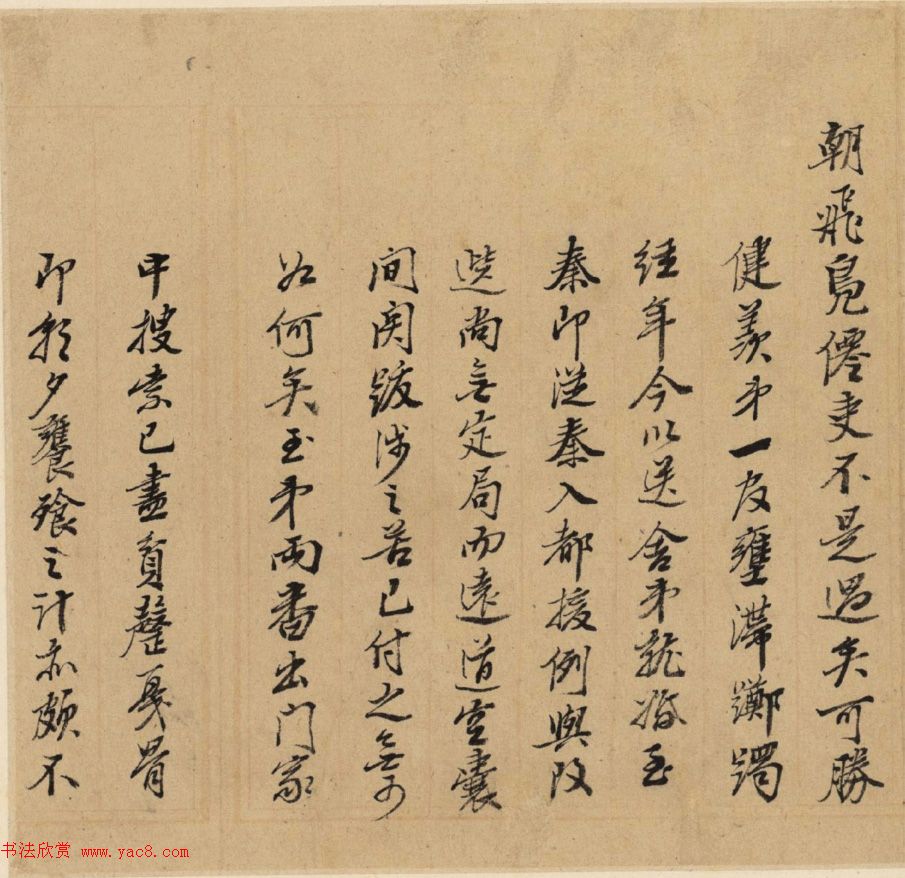 朝飛鳧僊吏不是過矣可勝
健羨弟一反壅滯躑躅
經年今以送舍弟就婚至
秦即從秦入都援例與改
選尚無定局而遠道空囊
間関跋涉之苦已付之無可
如何矣至弟兩番出門家
中搜索已盡負罄戛骨
即朝夕饔飧之計亦頗不
书法欣赏 www.yac8.com